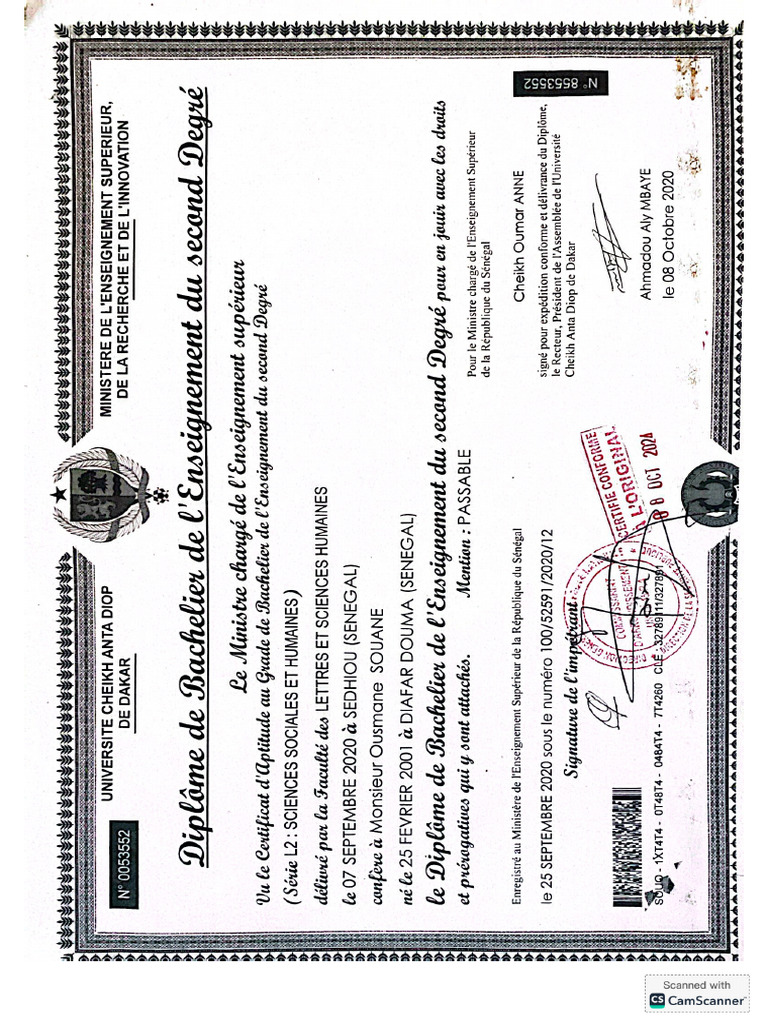 UNIVERSITE CHEIKH ANTA DIOP
DE DAKAR
MINISTERE DE L'ENSEIGNEMENT SUPERIEUR,
DE LA RECHERCHE ET DE L'INNOVATION
N° 0053552
Diplôme de Bachelier de l'Enseignement du second Degré
Le Ministre chargé de l'Enseignement supérieur
Vu le Certificat d'Aptitude au Grade de Bachelier de l'Enseignement du second Degré
(Série L2 : SCIENCES SOCIALES ET HUMAINES)
délivré par la Faculté des LETTRES ET SCIENCES HUMAINES
le 07 SEPTEMBRE 2020 à SEDHIOU (SENEGAL)
confère à Monsieur Ousmane SOUANE
né le 25 FEVRIER 2001 à DIAFAR DOUMA (SENEGAL)
le Diplôme de Bachelier de l'Enseignement du second Degré pour en jouir avec les droits
et prérogatives qui y sont attachés. Mention : PASSABLE
Pour le Ministre chargé de l'Enseignement Supérieur
de la République du Sénégal
Cheikh Oumar ANNE
N° 85553552
Enregistré au Ministère de l'Enseignement Supérieur de la République du Sénégal
le 25 SEPTEMBRE 2020 sous le numéro 100/52591/2020/12
signé pour expédition conforme et délivrance du Diplôme,
le Recteur, Président de l'Assemblée de l'Université
Cheikh Anta Diop de Dakar
Signature de l'impétrant
CERTIFIE CONFORME
A L'ORIGINAL
08 OCT 2024
Ahmadou Aly MBAYE
le 08 Octobre 2020
1XT4T4 - 0T48T4 - 0484T4 - 7T4260 CLE :
Scanned with
CS CamScanner